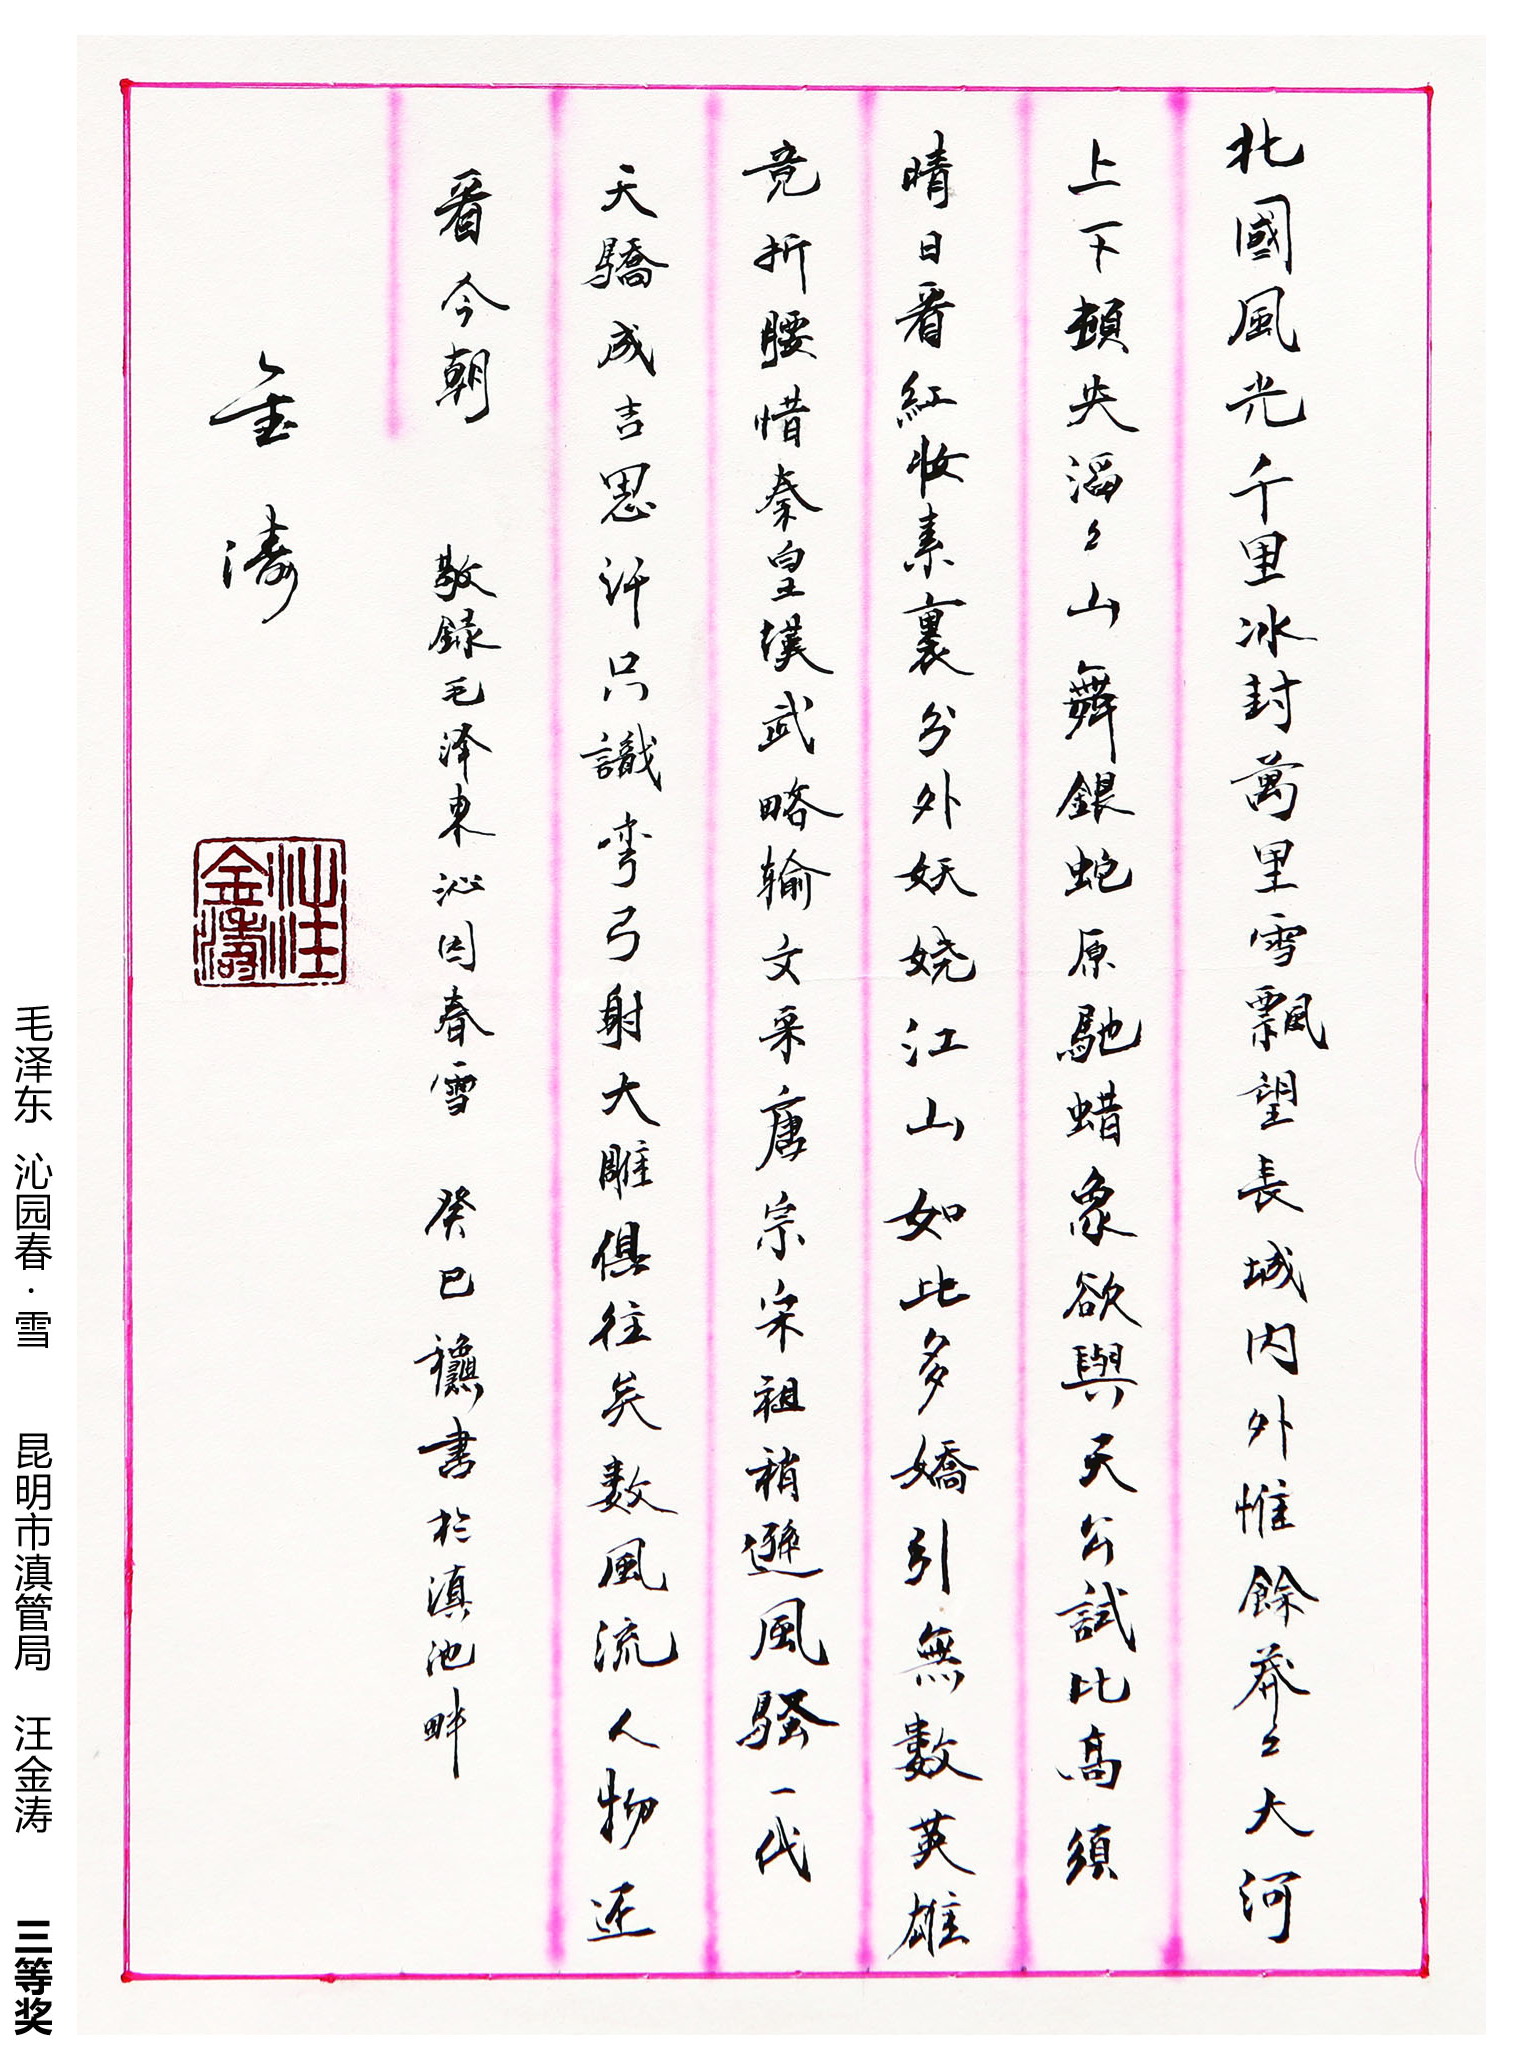 北國風光千里冰封萬里雪飄望長城内外惟餘莽〻大河
上下頓失滔〻山舞銀蛇原馳蜡象欲與天公試比高須
晴日看紅妝素裹分外妖娆江山如此多嬌引無數英雄
竞折腰惜秦皇漢武略输文采唐宗宋祖稍遜風騷一代
天驕成吉思汗只識弯弓射大雕俱往矣數風流人物还
看今朝 敬録毛泽東沁园春雪 癸巳龝書於滇池畔
金濤
汪金濤
毛泽东 沁园春·雪 昆明市滇管局 汪金涛 三等奖